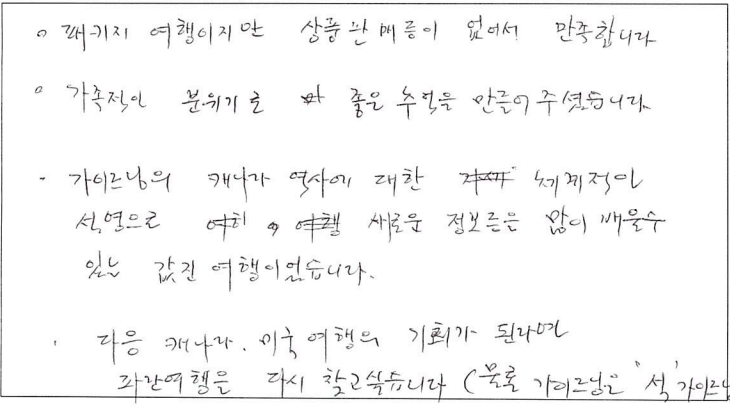 패키지 여행이지만 상품판매등이 없어서 만족합니다
가족적인 분위기로 좋은 추억을 만들어 주셨습니다.
가이드님의 캐나다 역사에 대한 체계적인
석명으로 새로운 정보들은 많이 배울수
있는 값진 여행이었습니다.
다음 캐나다. 미국여행의 기회가 된라면
파란여행을 다시 찾고싶습니다 (물론 가이드님은 '석' 가이드